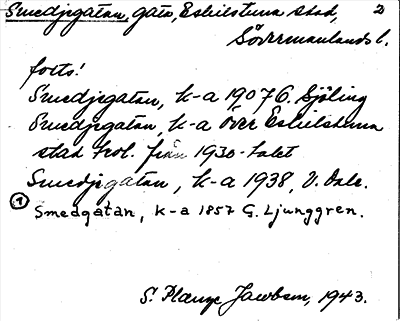 Smedjegatan, gata, Eskilstuna stad, 2
Södermanlands l.
forts!
Smedjegatan, k-a 1907 G. Sjöling
Smedjegatan, k-a över Eskilstuna
stad trol. från 1930-talet
Smedjegatan, k-a 1938, V. Dale.
1 Smedgatan, k-a 1857 G. Ljunggren.
S. Jacobson, 1943.